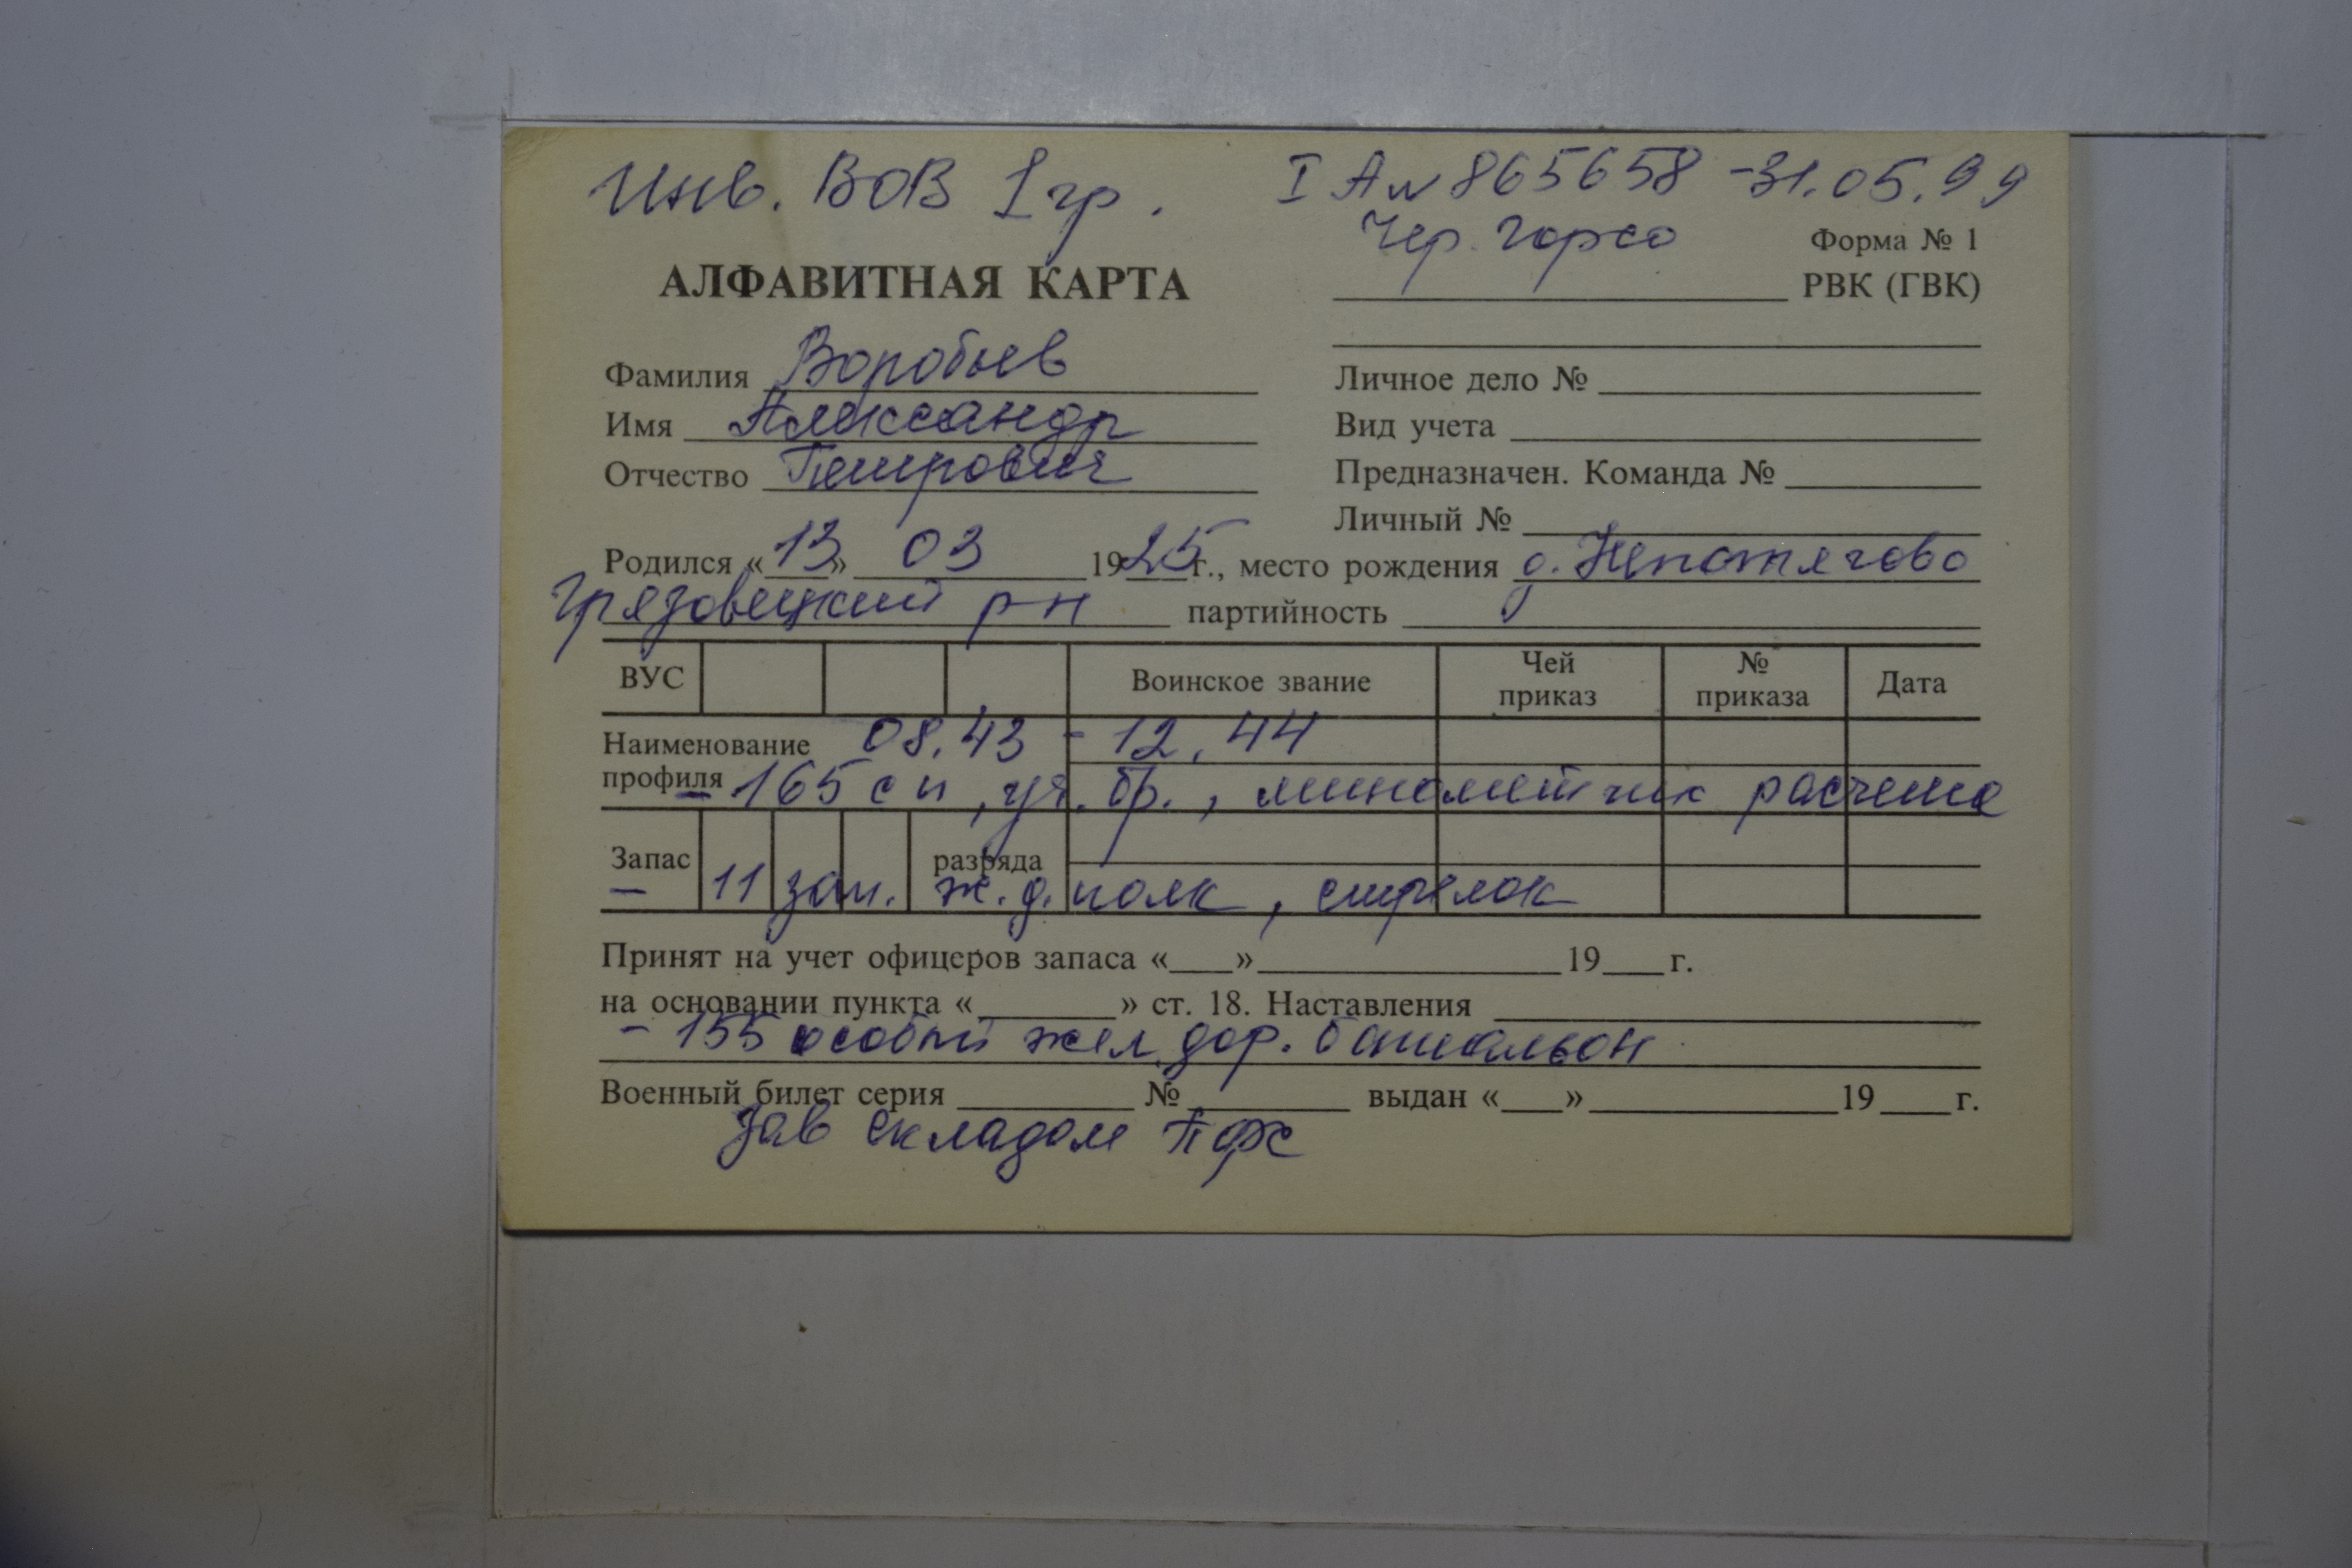 Инв. ВОВ I гр.
I А № 865658 - 31.05.99
Чер. горсо
Форма № 1
АЛФАВИТНАЯ КАРТА
РВК (ГВК)
Фамилия Воробьев
Личное дело №
Имя Александр
Вид учета
Отчество Петрович
Предназначен. Команда №
Личный №
Родился «13» 03 1925 г., место рождения д. Непотягово
Грязовецкий р-н партийность
ВУС Воинское звание Чей приказ № приказа Дата
Наименование профиля 08.43 - 12.44
- 165 сп, уч. бр., минометчик расчета
Запас разряда
- 11 зап. ж.д. полк, стрелок
Принят на учет офицеров запаса «___» 19___ г.
на основании пункта «___» ст. 18. Наставления
- 155 особый жел. дор. батальон
Военный билет серия № выдан «___» 19___ г.
зав складом ПФС